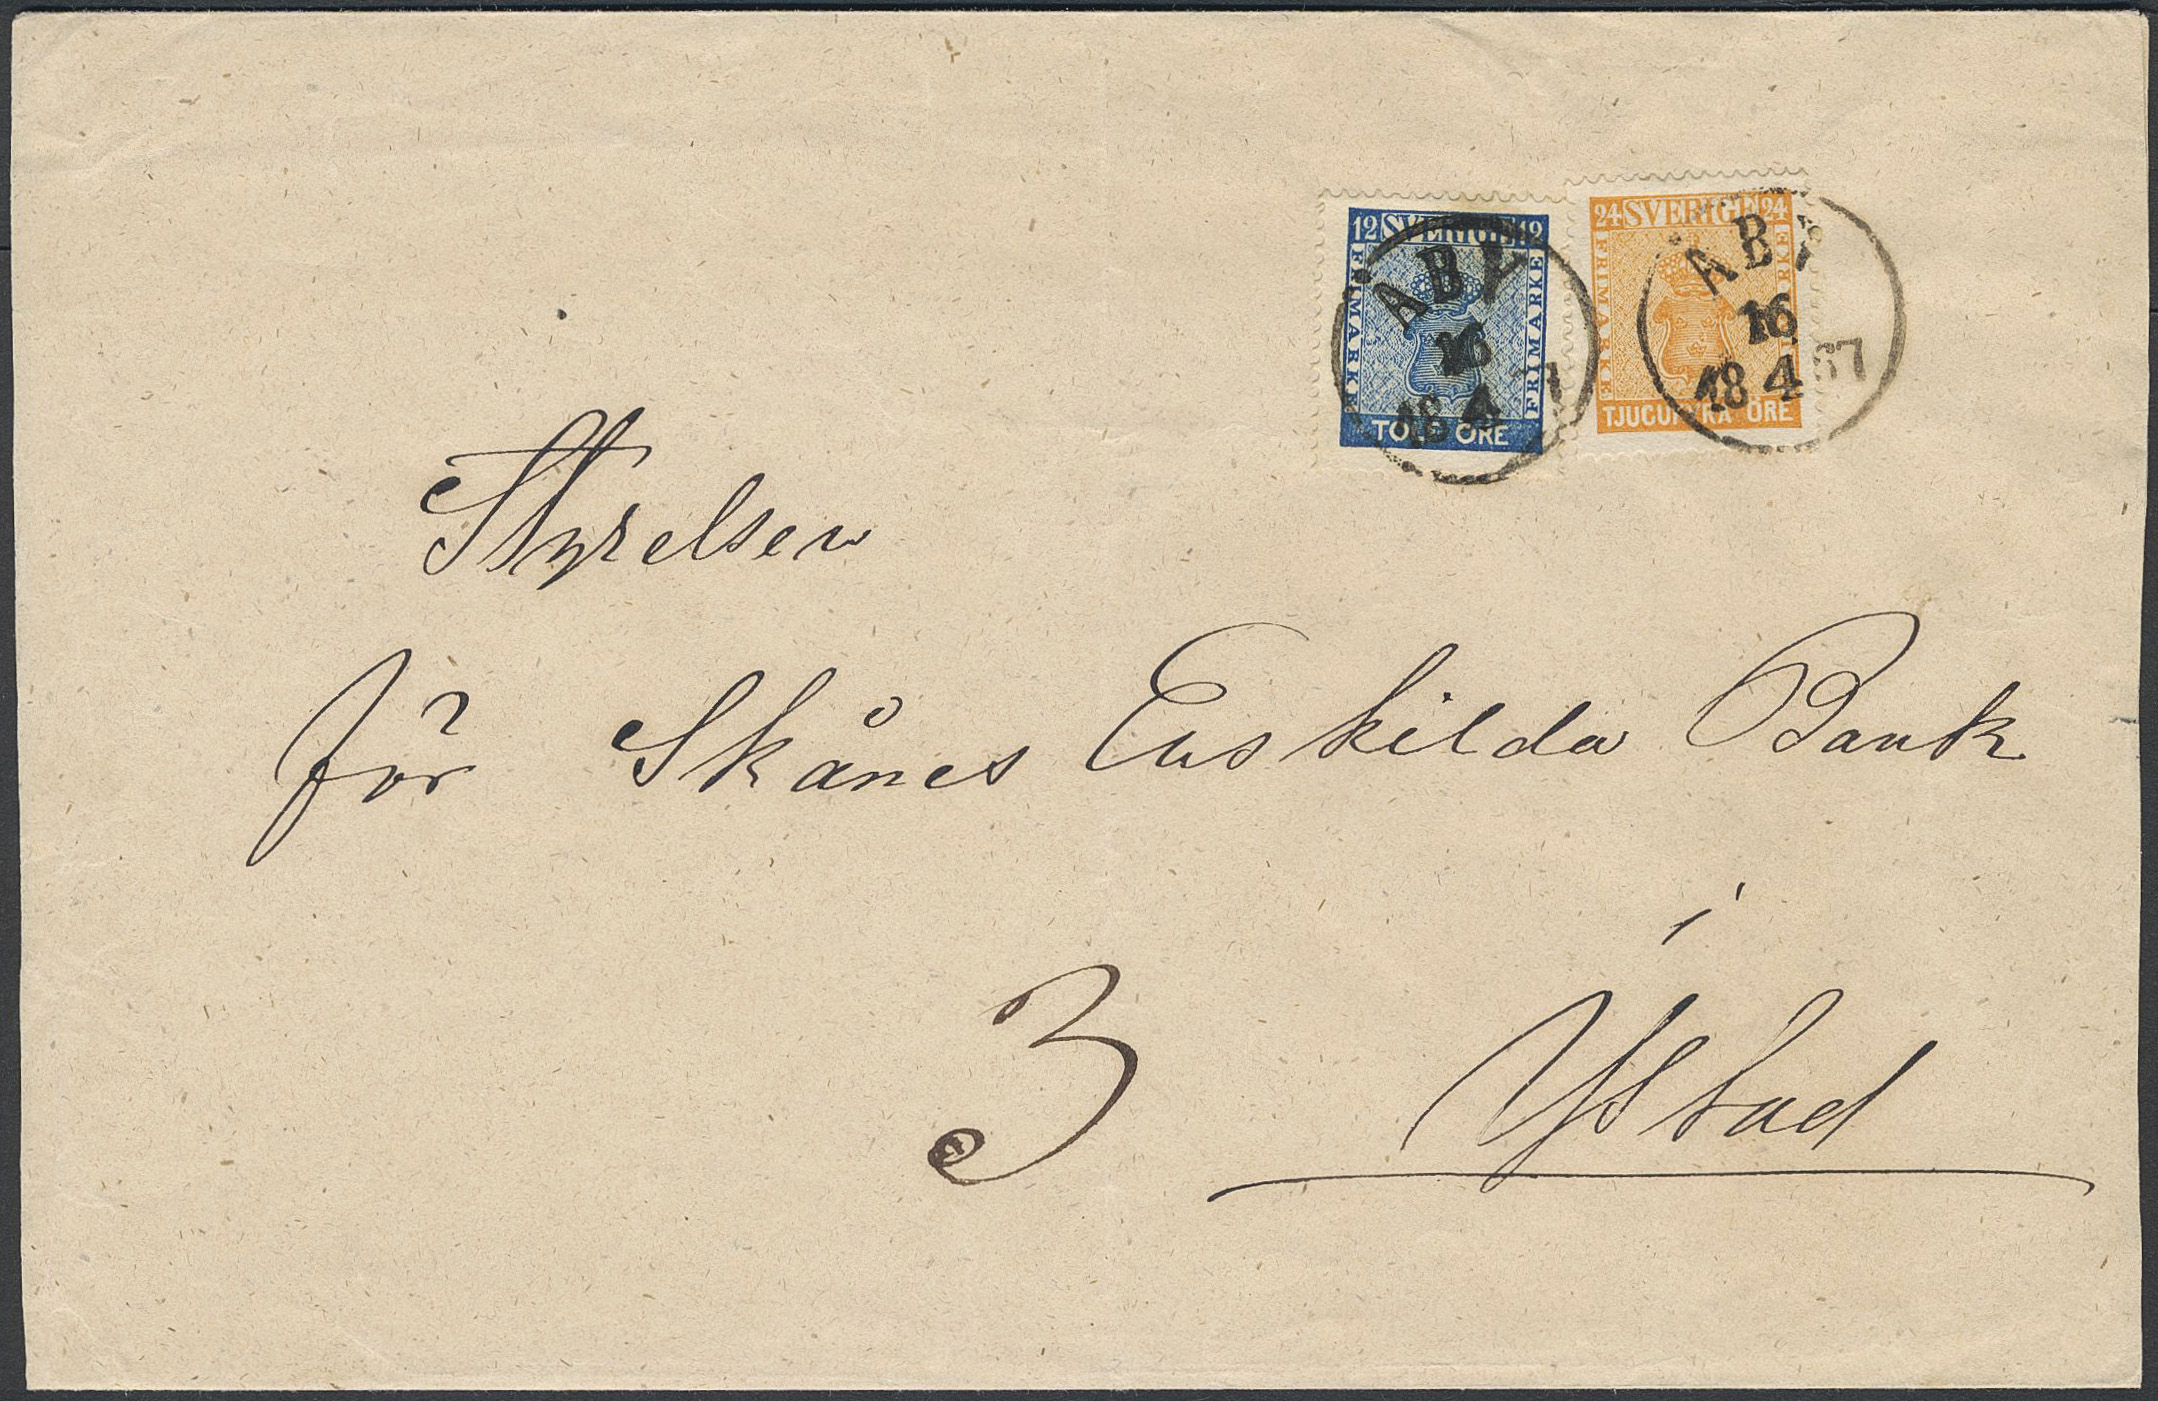 12 SVERIGE 12
FRIMARKE
FRIMARKE
TOLF ÖRE
24 SVERIGE 24
FRIMARKE
TJUGUFYRA ÖRE
ÅBY
16
4
18
ÅBY
16
4
18 67
Styrelsen
för Skånes Enskilda Bank
i
3
Ystad